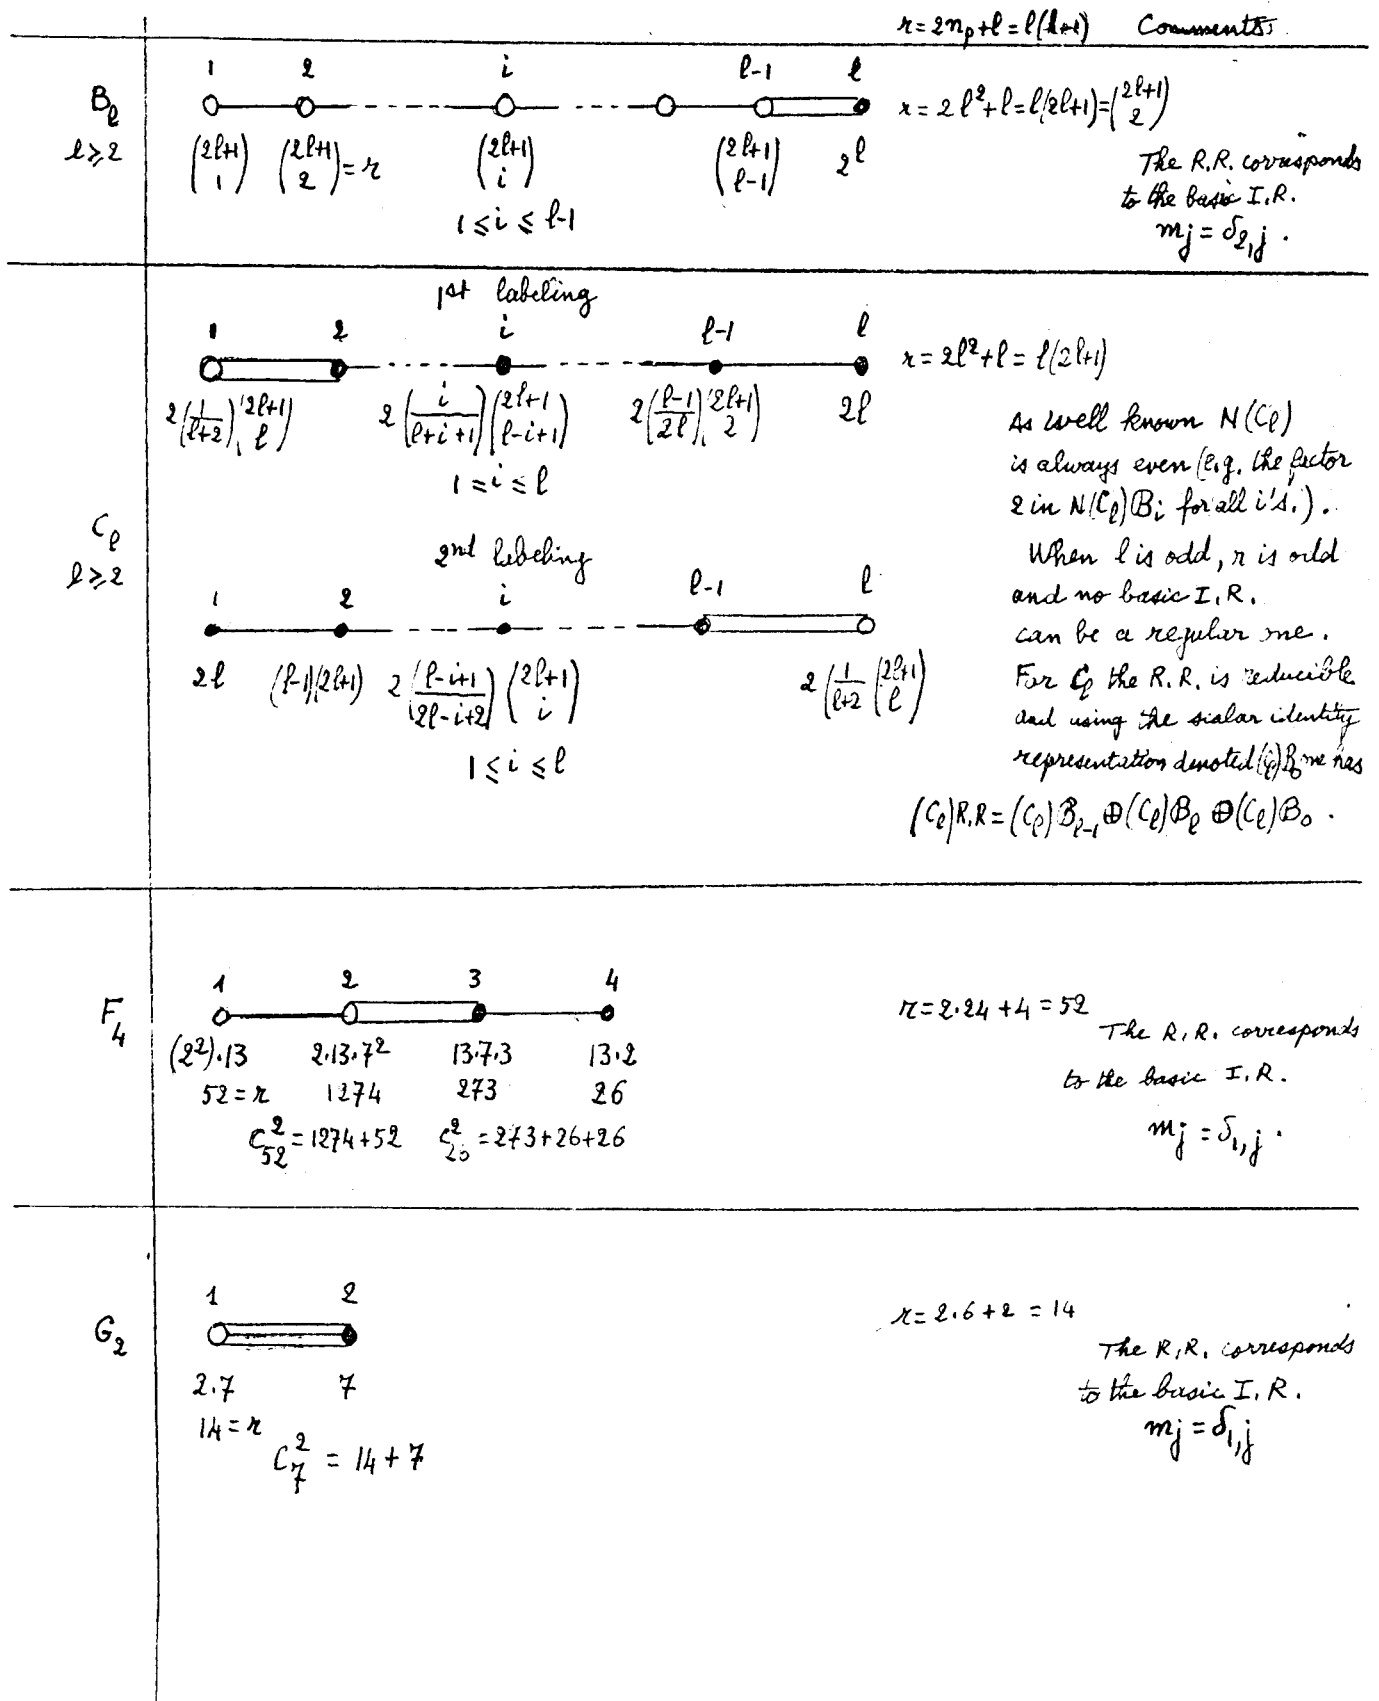 r = 2n_p + l = l(h+1) Comments
B_l
l ⩾ 2
1 2 i l-1 l
(2l+1 1) (2l+1 2) = r (2l+1 i) (2l+1 l-1) 2^l
1 ⩽ i ⩽ l-1
r = 2l² + l = l(2l+1) = (2l+1 2)
The R.R. corresponds
to the basic I.R.
m_j = δ_{2,j} .
C_l
l ⩾ 2
1st labeling
1 2 i l-1 l
2(1/(l+2))(2l+1 l) 2(i/(l+i+1))(2l+1 l-i+1) 2((l-1)/2l)(2l+1 2) 2l
1 ⩽ i ⩽ l
2nd labeling
1 2 i l-1 l
2l (l-1)(2l+1) 2((l-i+1)/(2l-i+2))(2l+1 i) 2(1/(l+2))(2l+1 l)
1 ⩽ i ⩽ l
r = 2l² + l = l(2l+1)
As well known N(C_l)
is always even (e.g. the factor
2 in N(C_l)B_i for all i's.).
When l is odd, r is odd
and no basic I.R.
can be a regular one.
For C_l the R.R. is reducible
and using the scalar identity
representation denoted (C_l)B_0 one has
(C_l)R.R = (C_l)B_{l-1} ⊕ (C_l)B_l ⊕ (C_l)B_0 .
F_4
1 2 3 4
(2²).13 2.13.7² 13.7.3 13.2
52 = r 1274 273 26
C²_52 = 1274+52 C²_26 = 273+26+26
r = 2.24 + 4 = 52
The R.R. corresponds
to the basic I.R.
m_j = δ_{1,j} .
G_2
1 2
2.7 7
14 = r
C²_7 = 14 + 7
r = 2.6 + 2 = 14
The R.R. corresponds
to the basic I.R.
m_j = δ_{1,j}